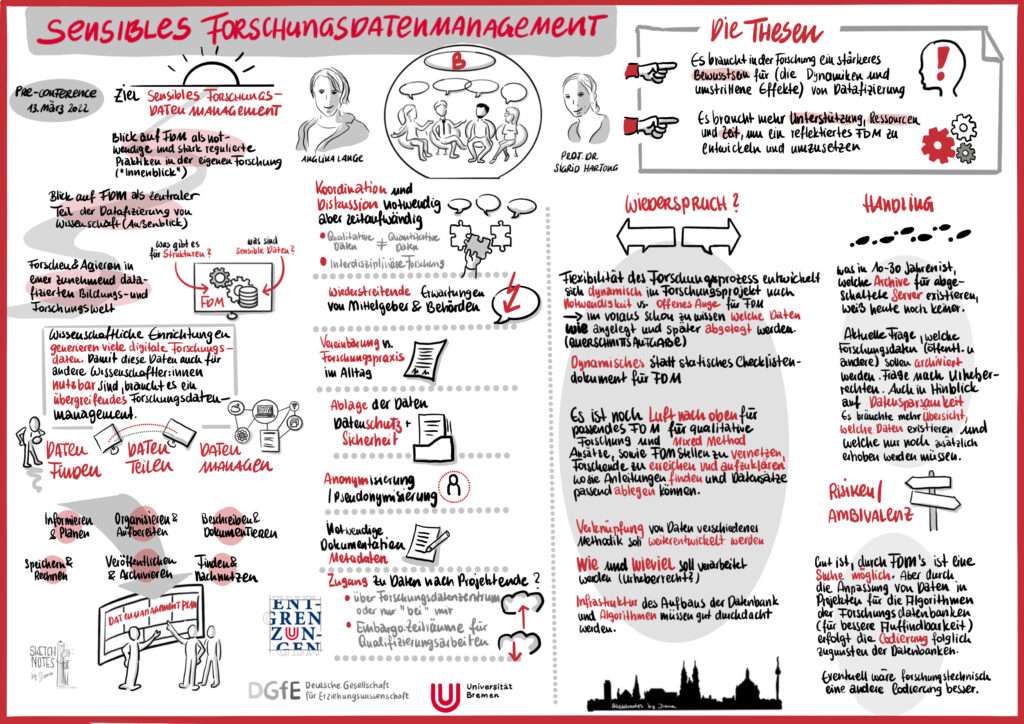 SENSIBLES FORSCHUNGSDATENMANAGEMENT
PRE-CONFERENCE
13. MÄRZ 2022
ZIEL SENSIBLES FORSCHUNGS-
DATENMANAGEMENT
Blick auf FDM als not-
wendige und stark regulierte
Praktiken in der eigenen Forschung
("Innenblick")
Blick auf FDM als zentraler
Teil der Datafizierung von
Wissenschaft (Außenblick)
Forschen & Agieren in
einer zunehmend data-
fizierten Bildungs- und
Forschungswelt
was gibt es
für Strukturen?
was sind
sensible Daten?
FDM
Wissenschaftliche Einrichtungen
generieren viele digitale Forschungs-
daten. Damit diese Daten auch für
andere Wissenschaftler:innen
nutzbar sind, braucht es ein
übergreifendes Forschungsdaten-
management.
DATEN
FINDEN
DATEN
TEILEN
DATEN
MANAGEN
Informieren
& Planen
Organisieren &
Aufbereiten
Beschreiben &
Dokumentieren
Speichern &
Rechnen
Veröffentlichen
& Archivieren
Finden &
Nachnutzen
DATENMANAGEMENT PLAN
SKETCH
NOTES
by Diana
ANGELINA LANGE
B
PROF. DR.
SIGRID HARTONG
Koordination und
Diskussion notwendig
aber zeitaufwändig
• Qualitative Daten ≠ Quantitative Daten
• Interdisziplinäre Forschung
Wiederstreitende Erwartungen
von Mittelgeber & Behörden
Vereinbarung v.
Forschungspraxis
im Alltag
Ablage der Daten
Datenschutz +
Sicherheit
Anonymisierung
/Pseudonymisierung
Notwendige
Dokumentation
Metadaten
Zugang zu Daten nach Projektende?
• über Forschungsdatenzentrum
oder nur "bei" mir
• Embargozeiträume für
Qualifizierungsarbeiten
ENT
GREN
ZUN
GEN
DGfE Deutsche Gesellschaft
für Erziehungswissenschaft
Universität
Bremen
DIE THESEN
Es braucht in der Forschung ein stärkeres
Bewusstsein für (die Dynamiken und
umstrittene Effekte) von Datafizierung
Es braucht mehr Unterstützung, Ressourcen
und Zeit, um ein reflektiertes FDM zu
entwickeln und umzusetzen
WIEDERSPRUCH?
Flexibilität des Forschungsprozess entwickelt
sich dynamisch im Forschungsprojekt nach
Notwendigkeit vs. Offenes Auge für FDM
→ im voraus schon zu wissen welche Daten
wie angelegt und später abgelegt werden
(QUERSCHNITTSAUFGABE)
Dynamisches statt statisches Checklisten-
dokument für FDM
Es ist noch Luft nach oben für
passendes FDM für qualitative
Forschung und Mixed Method
Ansätze, sowie FDM Stellen zu vernetzen,
Forschende zu erreichen und aufzuklären,
wo sie Anleitungen finden und Datensätze
passend ablegen können.
Verknüpfung von Daten verschiedener
Methodik soll weiterentwickelt werden
Wie und wieviel soll vorarbeitet
werden (Urheberrecht?)
Infrastruktur des Aufbaus der Datenbank
und Algorithmen müssen gut durchdacht
werden.
Sketchnotes by Diana
HANDLING
was in 10-30 Jahren ist,
welche Archive für abge-
schaltete Server existieren,
weiß heute noch keiner.
Aktuelle Frage, welche
Forschungsdaten (öffentl. u
andere) sollen archiviert
werden. Frage nach Urheber-
rechten. Auch in Hinblick
auf Datensparsamkeit
Es bräuchte mehr Übersicht,
welche Daten existieren und
welche nur noch zusätzlich
erhoben werden müssen.
RISIKEN/
AMBIVALENZ
Gut ist, durch FDM's ist eine
Suche möglich. Aber durch
die Anpassung von Daten in
Projekten für die Algorithmen
der Forschungsdatenbanken
(für bessere Auffindbarkeit)
erfolgt die Codierung folglich
zugunsten der Datenbanken.
Eventuell wäre forschungstechnisch
eine andere Codierung besser.